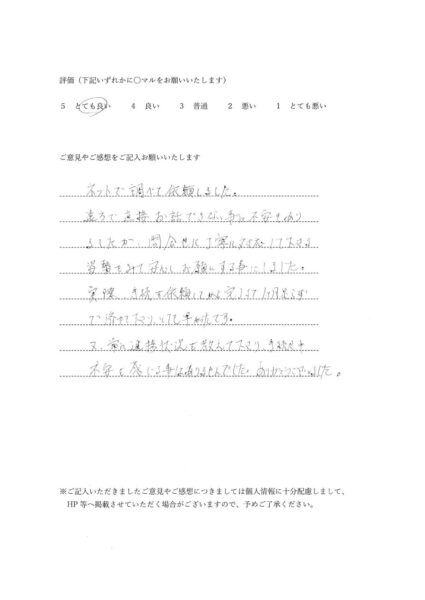 評価（下記いずれかに〇マルをお願いいたします）
5 とても良い 4 良い 3 普通 2 悪い 1 とても悪い
ご意見やご感想をご記入お願いいたします
ネットで調べて依頼しました。
遠方で直接お話できない事に不安もあり
ましたが、問合せに丁寧に対応して下さる
姿勢をみて安心しお願いする事にしました。
実際、手続を依頼してから完了まで1ヶ月足らず
で済せて下さり、とても早かったです。
又、常に進捗状況を教えて下さり、手続き中
不安を感じる事はありませんでした。ありがとうございました。
※ご記入いただきましたご意見やご感想につきましては個人情報に十分配慮しまして、
HP等へ掲載させていただく場合がございますので、予めご了承ください。